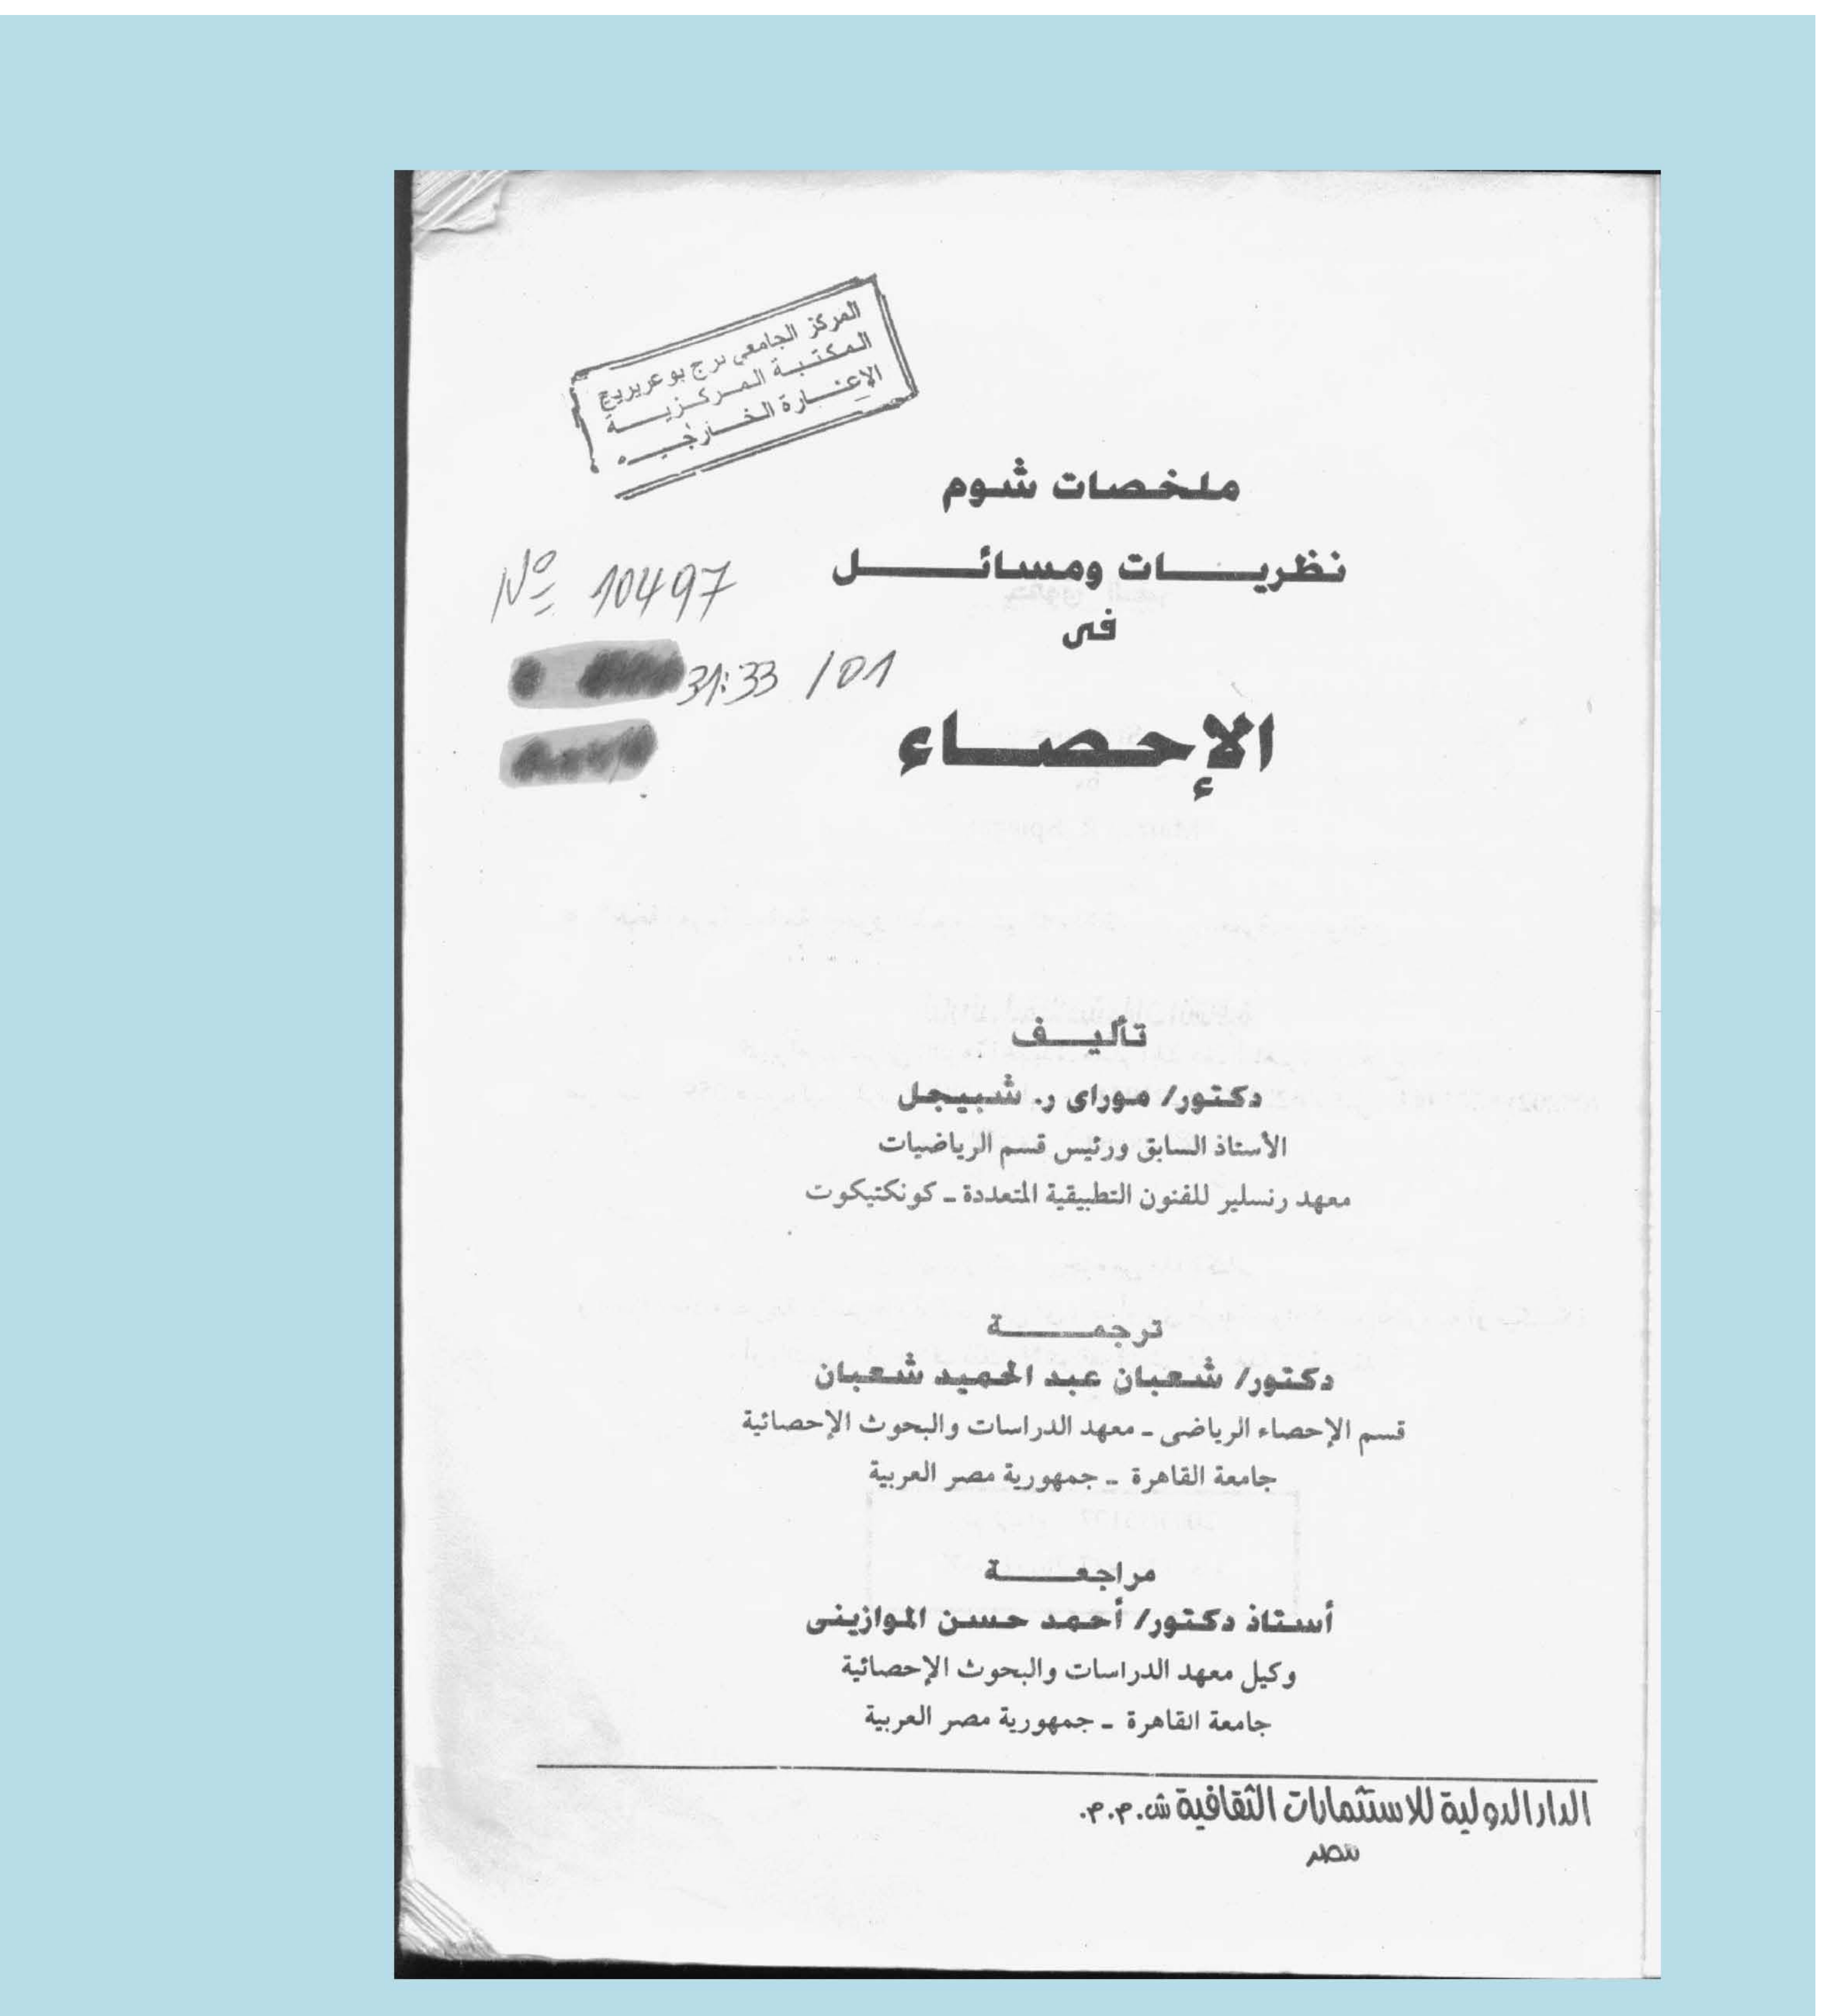 المركز الجامعي برج بوعريريج
المكتبة المركزية
الإعارة الخارجية
ملخصات شوم
نظريات ومسائل
فى
الإحصاء
Nº 10497
31:33 /01
تأليف
دكتور/ موراى ر. شبيجل
الأستاذ السابق ورئيس قسم الرياضيات
معهد رنسلير للفنون التطبيقية المتعددة ـ كونكتيكوت
ترجمة
دكتور/ شعبان عبد الحميد شعبان
قسم الإحصاء الرياضى ـ معهد الدراسات والبحوث الإحصائية
جامعة القاهرة ـ جمهورية مصر العربية
مراجعة
أستاذ دكتور/ أحمد حسن الموازينى
وكيل معهد الدراسات والبحوث الإحصائية
جامعة القاهرة ـ جمهورية مصر العربية
الدار الدولية للاستثمارات الثقافية ش.م.م.
مصر